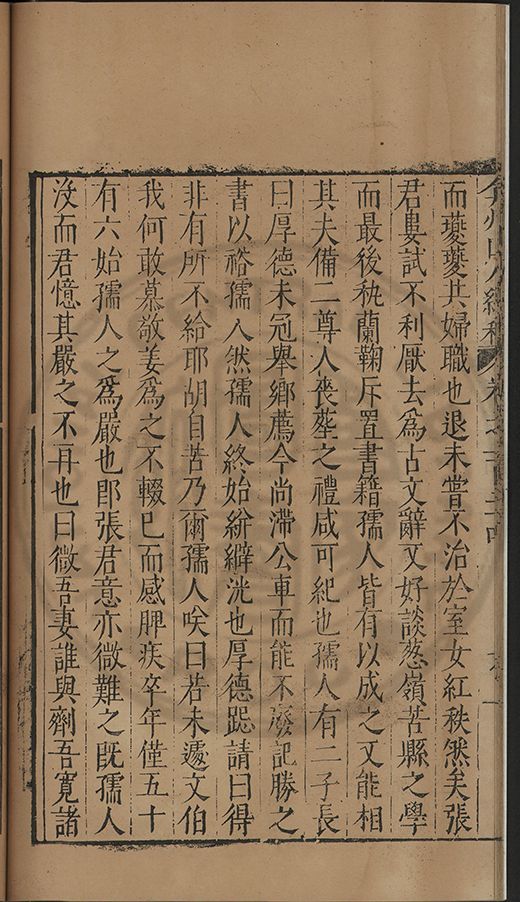 而夔夔共婦職也退未嘗不治於室女紅秩然矣張
君婁試不利厭去為古文辭又好談葱嶺苦縣之學
而最後秇蘭鞠斥置書籍孺人皆有以成之又能相
其夫備二尊人喪塟之禮咸可紀也孺人有二子長
曰厚德未冠舉鄉薦今尚滯公車而能不廢記勝之
書以裕孺人然孺人終始絣澼洸也厚德跽請曰得
非有所不給耶胡自苦乃爾孺人唉曰若未遽文伯
我何敢慕敬姜為之不輟已而感脾疾卒年僅五十
有六始孺人之爲嚴也卽張君意亦微難之旣孺人
沒而君憶其嚴之不再也曰微吾妻誰與劑吾寬諸